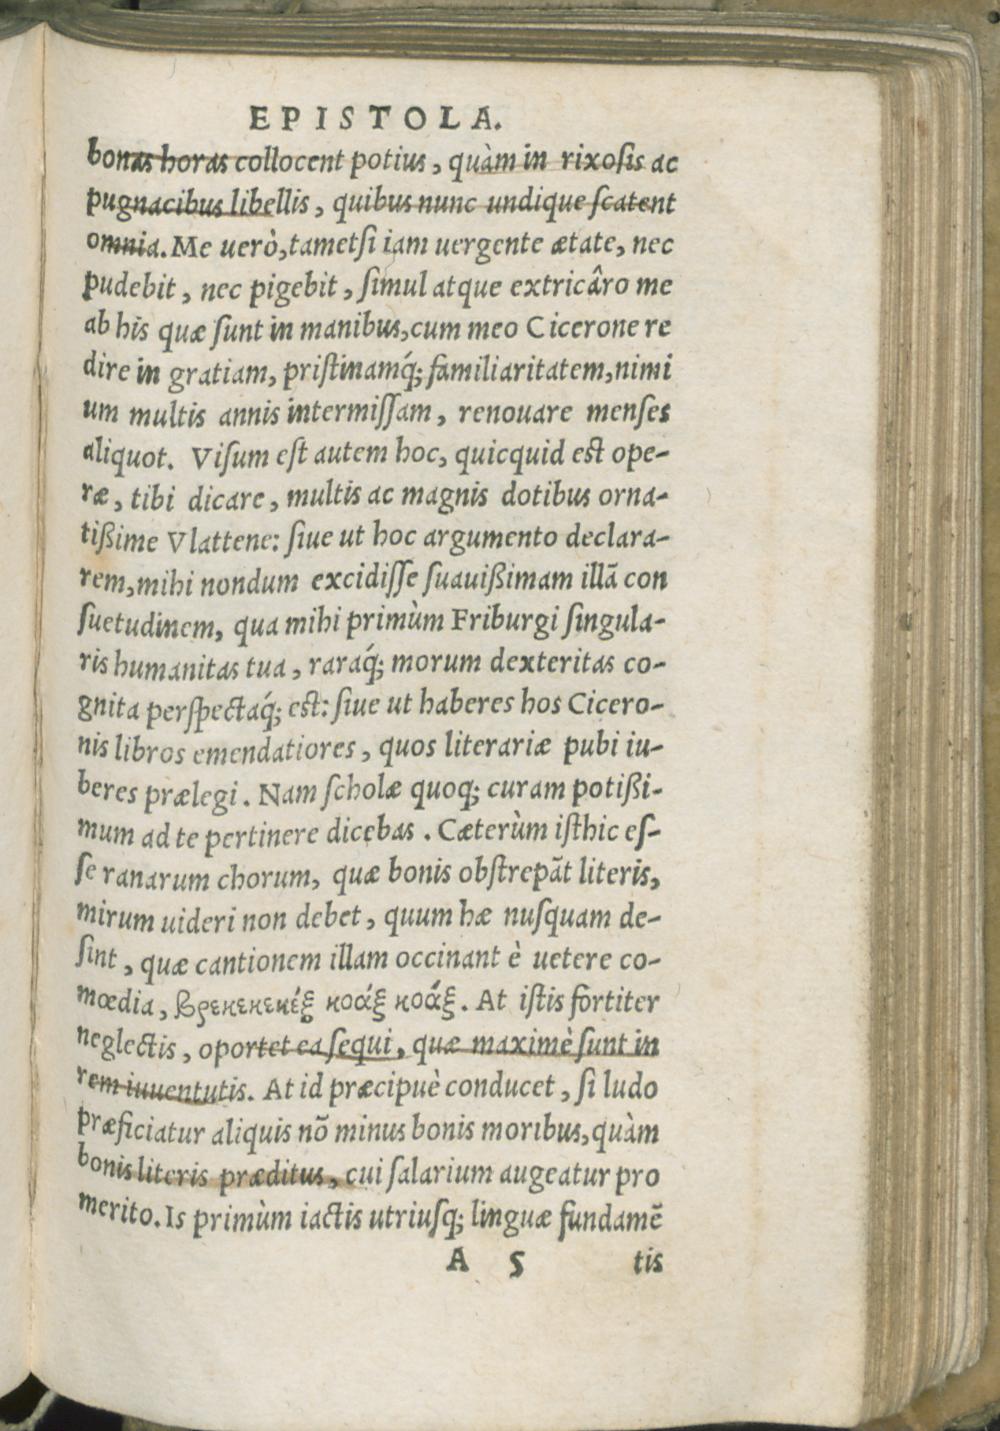 EPISTOLA.
bonas horas collocent potius, quàm in rixosis ac
pugnacibus libellis, quibus nunc undique ſcatent
omnia. Me uerò, tametſi iam uergente ætate, nec
pudebit, nec pigebit, ſimul atque extricâro me
ab his quæ ſunt in manibus, cum meo Cicerone re
dire in gratiam, priſtinamq́; familiaritatem, nimi
um multis annis intermiſſam, renouare menſes
aliquot. Viſum eſt autem hoc, quicquid eſt ope-
ræ, tibi dicare, multis ac magnis dotibus orna-
tißime Vlattene: ſiue ut hoc argumento declara-
rem, mihi nondum excidiſſe ſuauißimam illã con
ſuetudinem, qua mihi primùm Friburgi ſingula-
ris humanitas tua, raraq́; morum dexteritas co-
gnita perſpectaq́; eſt: ſiue ut haberes hos Cicero-
nis libros emendatiores, quos literariæ pubi iu-
beres prælegi. Nam ſcholæ quoq; curam potißi-
mum ad te pertinere dicebas. Cæterùm iſthic eſ-
ſe ranarum chorum, quæ bonis obſtrepãt literis,
mirum uideri non debet, quum hæ nuſquam de-
ſint, quæ cantionem illam occinant è uetere co-
mœdia, βρεκεκεκέξ κοάξ κοάξ. At iſtis fortiter
neglectis, oportet ea ſequi, quæ maximè ſunt in
rem iuuentutis. At id præcipuè conducet, ſi ludo
præficiatur aliquis nõ minus bonis moribus, quàm
bonis literis præditus, cui ſalarium augeatur pro
merito. Is primùm iactis utriuſq; linguæ fundamẽ
A 5 tis